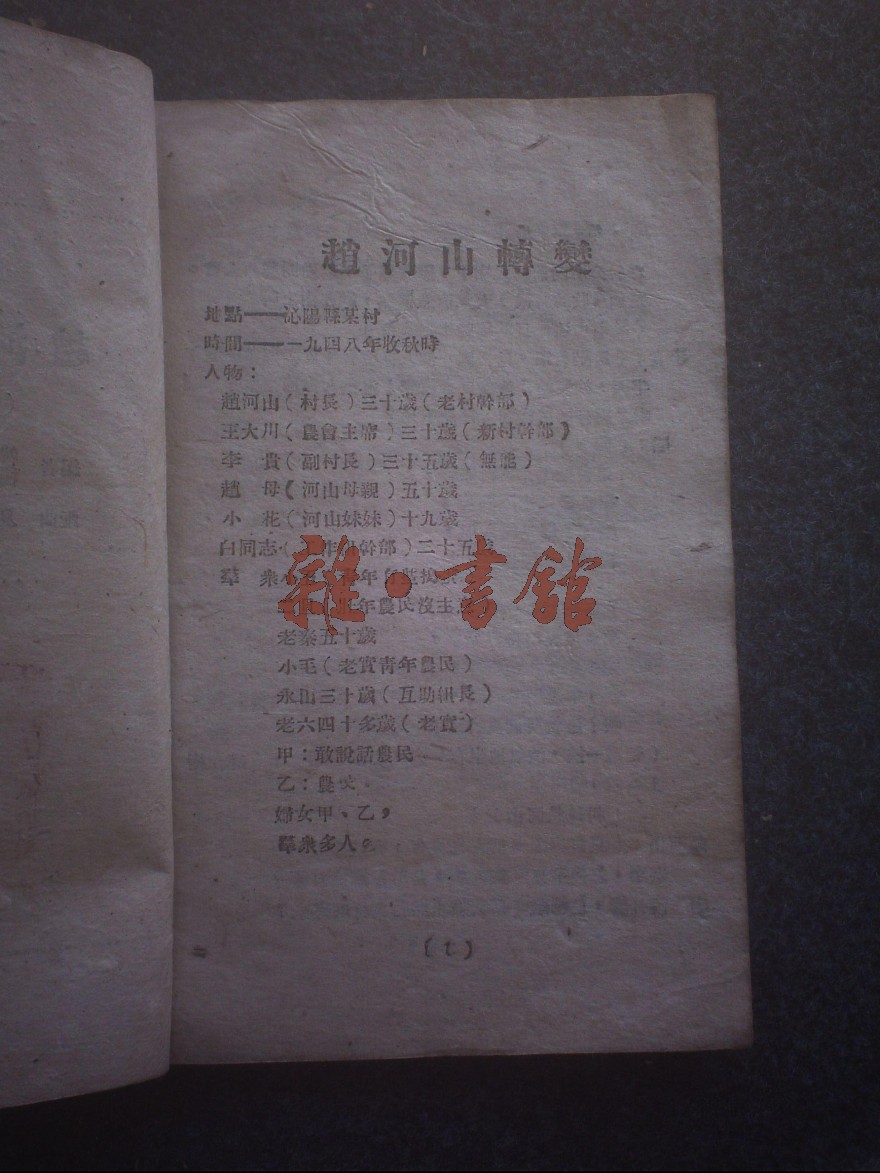 趙河山轉變
地點——沁陽縣某村
時間——一九四八年收秋時
人物：
趙河山（村長）三十歲（老村幹部）
王大川（農會主席）三十歲（新村幹部）
李 貴（副村長）三十五歲（無能）
趙 母（河山母親）五十歲
小 花（河山妹妹）十九歲
白同志（工作組幹部）二十五歲
羣 衆小
年農民沒主意
老秦五十歲
小毛（老實青年農民）
永山三十歲（互助組長）
老六四十多歲（老實）
甲：敢說話農民
乙：農民
婦女甲、乙，
羣衆多人。
（1）
雜·書舘